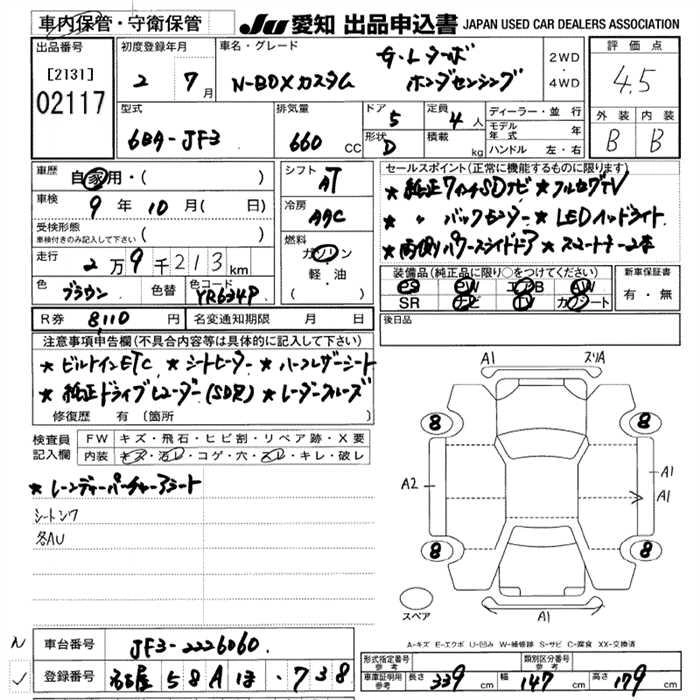 車内保管・守衛保管
JU 愛知 出品申込書 JAPAN USED CAR DEALERS ASSOCIATION
出品番号
[2131]
02117
初度登録年月
2 7月
車名・グレード
G・Lターボ
N-BOXカスタム ホンダセンシング
2WD・4WD
評価点
4.5
外装 内装
B B
型式
6BA-JF3
排気量
660 CC
ドア 5
定員 4人
形状 D
積載 kg
ディーラー・並行
モデル年式 年
ハンドル 左・右
車歴
自家用・( )
車検
9年10月( 日)
受検形態
車検付きのみ記入して下さい ( )
走行
2万9千213km
色
ブラウン
色替
色コード
YR634P
シフト
AT
冷房
AAC
燃料
ガソリン
軽・油
( )
セールスポイント(正常に機能するものに限ります)
★純正7インチSDナビ ★フルセグTV
★ 〃 バックモニター ★LEDヘッドライト
★両側パワースライドドア ★スマートキー2本
装備品(純正品に限り○をつけてください)
PS PW エアB AW
SR ナビ TV カワシート
新車保証書
有・無
R券 8,110円
名変通知期限 月 日
後日品
注意事項申告欄(不具合内容等は具体的に記入して下さい)
★ビルトインETC ★シートヒーター ★ハーフレザーシート
★純正ドライブレコーダー(SD欠) ★レーダークルーズ
修復歴 有〔箇所 〕
検査員記入欄
FW キズ・飛石・ヒビ割・リペア跡・X要
内装 キズ・汚レ・コゲ・穴・スレ・キレ・破レ
シートシワ
各AU
A1 スリA
8 8
A2 A1
A1
8 8
スペア
A1
A-キズ E-エクボ U-凹み W-補修跡 S-サビ C-腐食 XX-交換済
車台番号
JF3-2226060
登録番号
名古屋 58A は ・738
形式指定番号 参考
類別区分番号 参考
車庫証明用 参考 長さ 339 cm 幅 147 cm 高さ 179 cm